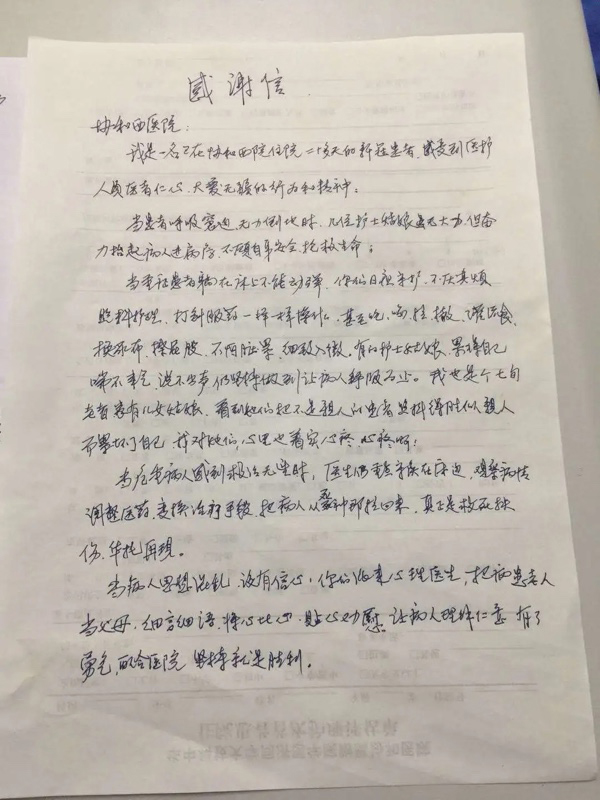 感谢信
协和西医院：
我是一名正在协和西院住院二十多天的新冠患者，感受到医护
人员医者仁心、大爱无疆的行为和精神：
当患者呼吸窘迫、无力倒地时，几位护士姑娘虽无大力，但奋
力抬起病人进病房，不顾自身安全，抢救生命；
当重症患者躺在床上不能动弹，你们日夜守护，不厌其烦
照料护理，打针服药一样一样操作，甚至吃、喝、拉、撒、灌流食、
换尿布、擦屁股，不怕脏累，细致入微。有的护士姑娘，累得自己
喘不来气，说不出声仍坚持做到让病人舒服为止。我也是个七旬
老者，家有儿女姑娘，看到她们把不是亲人的患者照料得胜似亲人
而累坏了自己，我对她们，心里也着实心疼，心疼啊！
当危重病人感到救治无望时，医生仍坚守在床边，观察病情
调整医药，变换治疗手段，把病人从死神那拉回来，真正是救死扶
伤，华佗再现。
当病人思想混乱，没有信心，你们收来心理医生，把病患老人
当父母，细言细语，将心比心，贴心劝慰，让病人理解仁意，有了
勇气，配合医院，坚持就是胜利。